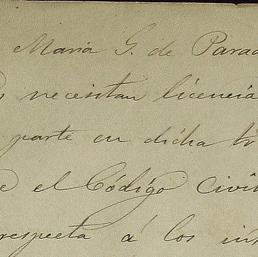 María G. de Parad
necesitan licencia
parte en dicha tr
e el Código Civil
respecta á los in